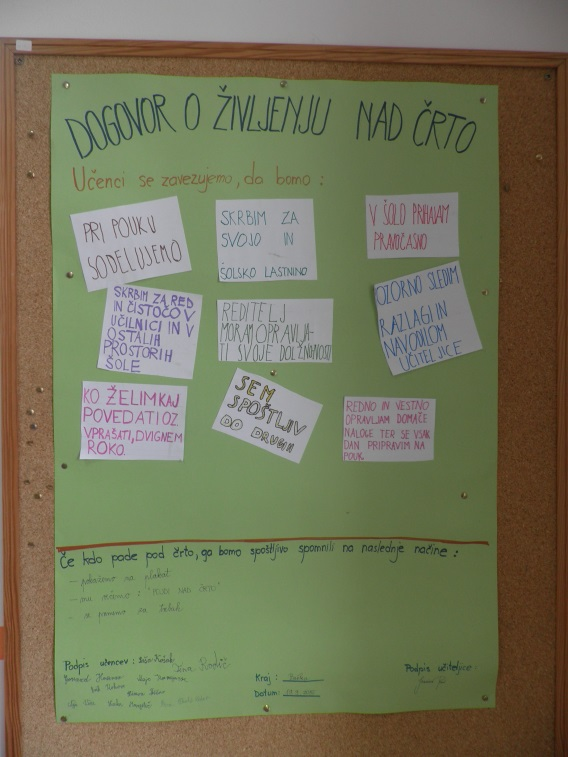 DOGOVOR O ŽIVLJENJU NAD ČRTO
Učenci se zavezujemo, da bomo :
PRI POUKU
SODELUJEMO
SKRBIM ZA
SVOJO IN
ŠOLSKO LASTNINO
V ŠOLO PRIHAJAM
PRAVOČASNO
SKRBIM ZA RED
IN ČISTOČO V
UČILNICI IN V
OSTALIH
PROSTORIH
ŠOLE
REDITELJ
MORAM OPRAVLJA-
TI SVOJE DOLŽNOSTI
OZORNO SLEDIM
RAZLAGI IN
NAVODILOM
UČITELJICE
KO ŽELIM KAJ
POVEDATI OZ.
VPRAŠATI, DVIGNEM
ROKO.
SEM
SPOŠTLJIV
DO DRUGIH
REDNO IN VESTNO
OPRAVLJAM DOMAČE
NALOGE TER SE VSAK
DAN PRIPRAVIM NA
POUK
Če kdo pade pod črto, ga bomo spoštljivo spomnili na naslednje načine :
- pokažemo na plakat
- mu rečemo : "BODI NAD ČRTO"
Podpis učencev :
Kraj :
Datum :
Podpis učiteljice :